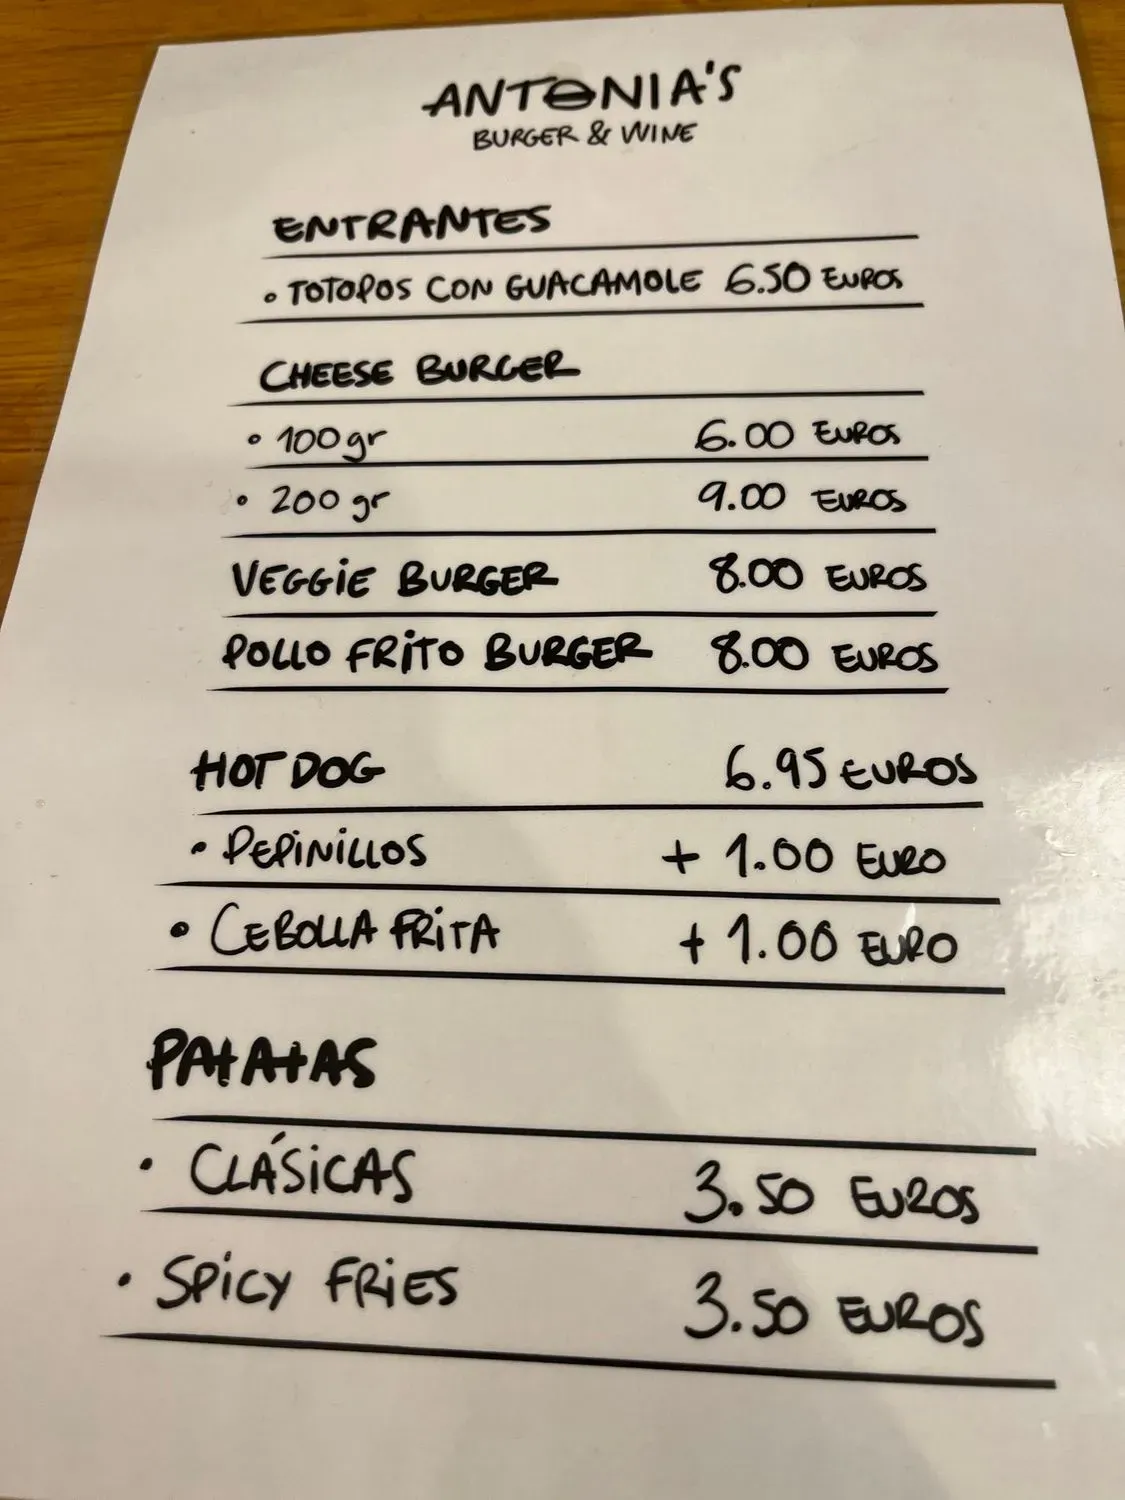 ANTONIA'S
BURGER & WINE
ENTRANTES
• TOTOPOS CON GUACAMOLE 6.50 EUROS
CHEESE BURGER
• 100gr 6.00 EUROS
• 200gr 9.00 EUROS
VEGGIE BURGER 8.00 EUROS
POLLO FRITO BURGER 8.00 EUROS
HOT DOG 6.95 EUROS
• PEPINILLOS + 1.00 EURO
• CEBOLLA FRITA + 1.00 EURO
PATATAS
• CLÁSICAS 3.50 EUROS
• SPICY FRIES 3.50 EUROS